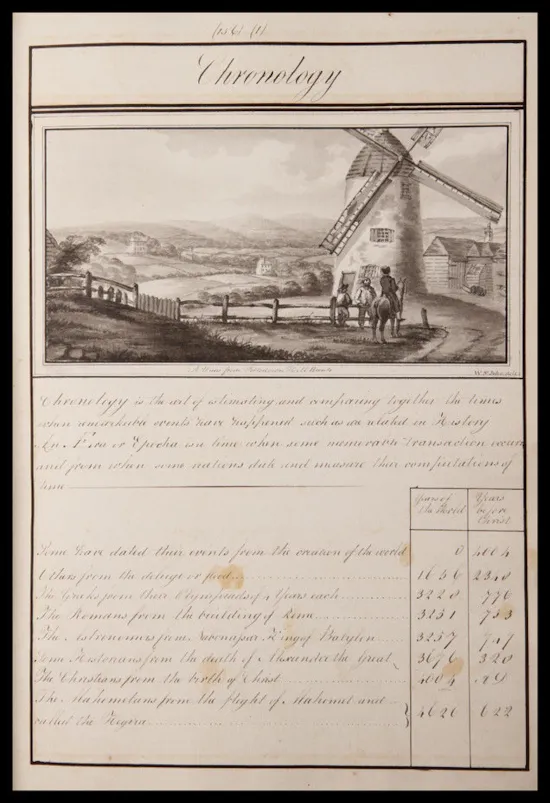 Chronology
A View from
Chronology is the art of estimating and comparing together the times
when remarkable events have happened such as are related in History
An Æra or Epocha is a time when some memorable Transaction occurr
and from when some nations date and measure their computations of
time
Years of the World
Years before Christ
Some have dated their events from the creation of the world 0 4004
Others from the deluge or flood 1656 2348
The Greeks from their Olympiads of 4 Years each 3228 776
The Romans from the building of Rome 3251 753
The Astronomers from Nabonassar King of Babylon 3257 747
Some Historians from the death of Alexander the Great 3676 328
The Christians from the birth of Christ 4004 AD
The Mahometans from the flight of Mahomet and
called the Hegira 4626 622